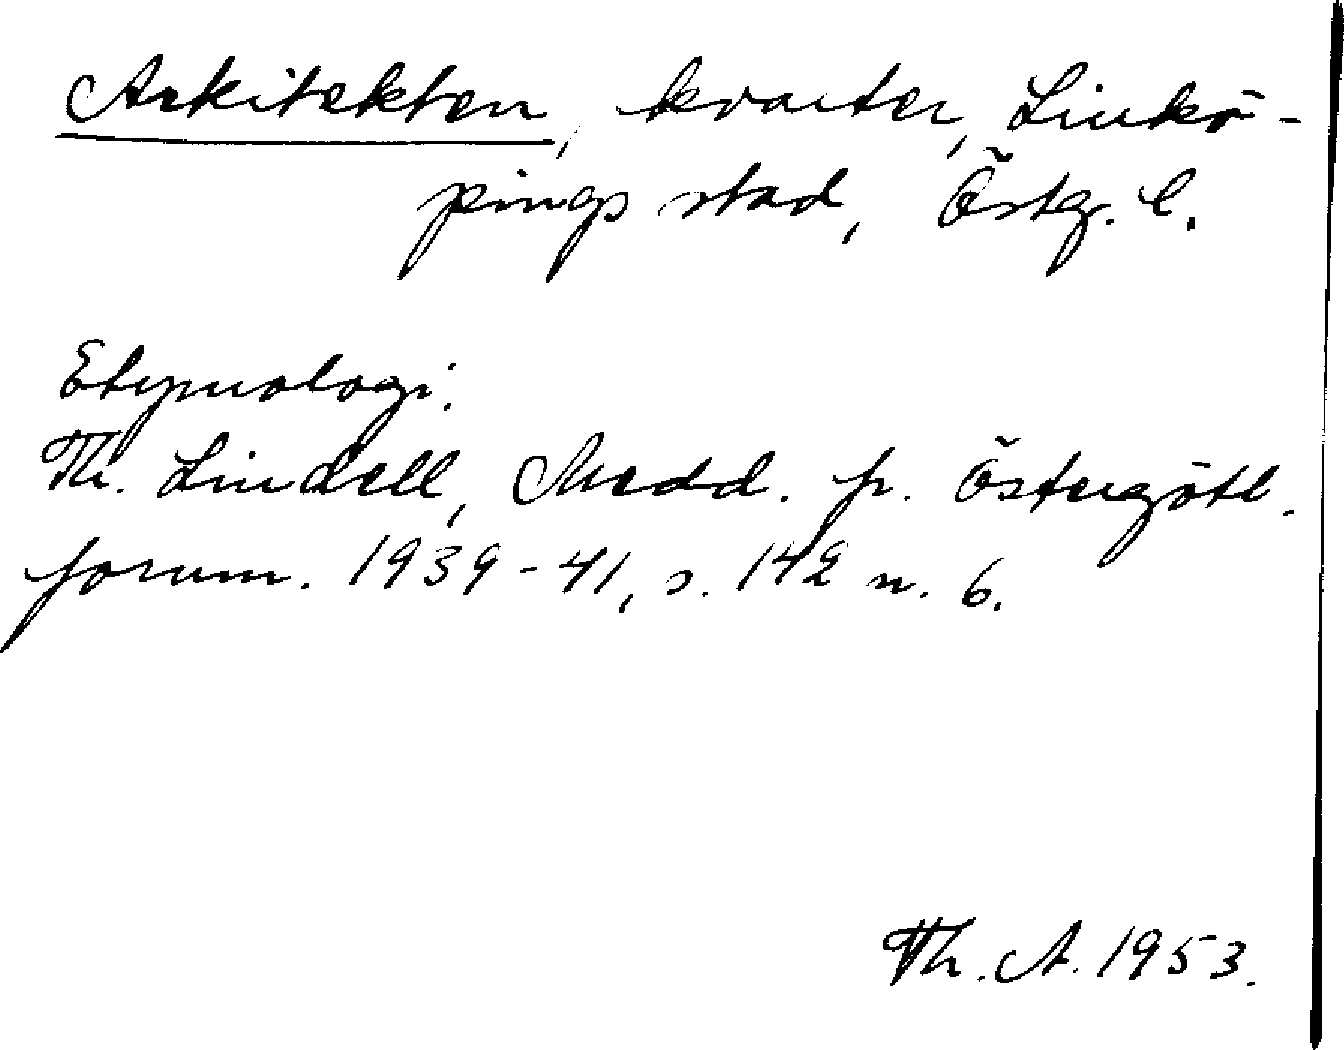 Arkitekten, kvarter, Linkö-
pings stad, Östg. l.
Etymologi:
Th. Lindell, Medd. fr. Östergötl.
fornm. 1939-41, s. 142 n. 6.
Th. A. 1953.